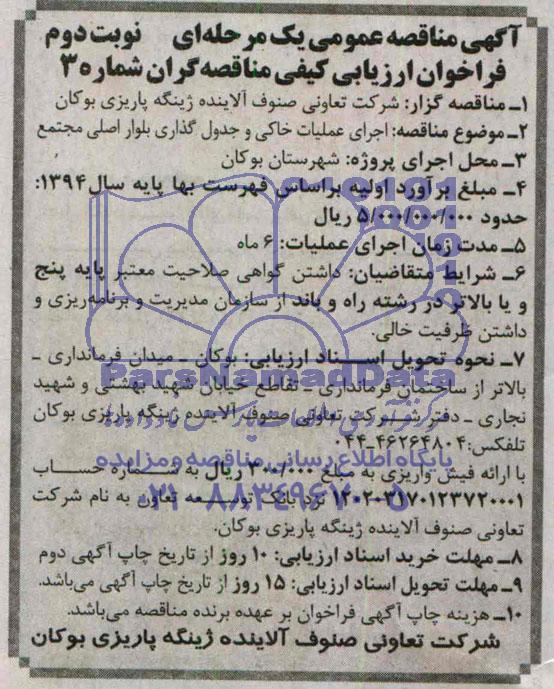 آگهی مناقصه عمومی یک مرحله‌ای نوبت دوم
فراخوان ارزیابی کیفی مناقصه گران شماره ۳
۱ـ مناقصه گزار: شرکت تعاونی صنوف آلاینده ژینگه پاریزی بوکان
۲ـ موضوع مناقصه: اجرای عملیات خاکی و جدول گذاری بلوار اصلی مجتمع
۳ـ محل اجرای پروژه: شهرستان بوکان
۴ـ مبلغ برآورد اولیه براساس فهرست بها پایه سال ۱۳۹۴:
حدود ۵/۰۰۰/۰۰۰/۰۰۰ ریال
۵ـ مدت زمان اجرای عملیات: ۶ ماه
۶ـ شرایط متقاضیان: داشتن گواهی صلاحیت معتبر پایه پنج
و یا بالاتر در رشته راه و باند از سازمان مدیریت و برنامه‌ریزی و
داشتن ظرفیت خالی.
۷ـ نحوه تحویل اسناد ارزیابی: بوکان ـ میدان فرمانداری ـ
ParsNamadData
بالاتر از ساختمان فرمانداری ـ تقاطع خیابان شهید بهشتی و شهید
نجاری ـ دفتر شرکت تعاونی صنوف آلاینده ژینگه پاریزی بوکان
تلفکس: ۴۶۲۶۴۸۰۴ـ۰۴۴
پایگاه اطلاع رسانی مناقصه و مزایده
با ارائه فیش واریزی به مبلغ ۳۰۰/۰۰۰ ریال به شماره حساب
۰۲۱-۸۸۳۴۹۶۷۰-۵
نزد بانک توسعه تعاون به نام شرکت
تعاونی صنوف آلاینده ژینگه پاریزی بوکان.
۸ـ مهلت خرید اسناد ارزیابی: ۱۰ روز از تاریخ چاپ آگهی دوم
۹ـ مهلت تحویل اسناد ارزیابی: ۱۵ روز از تاریخ چاپ آگهی می‌باشد.
۱۰ـ هزینه چاپ آگهی فراخوان بر عهده برنده مناقصه می‌باشد.
شرکت تعاونی صنوف آلاینده ژینگه پاریزی بوکان